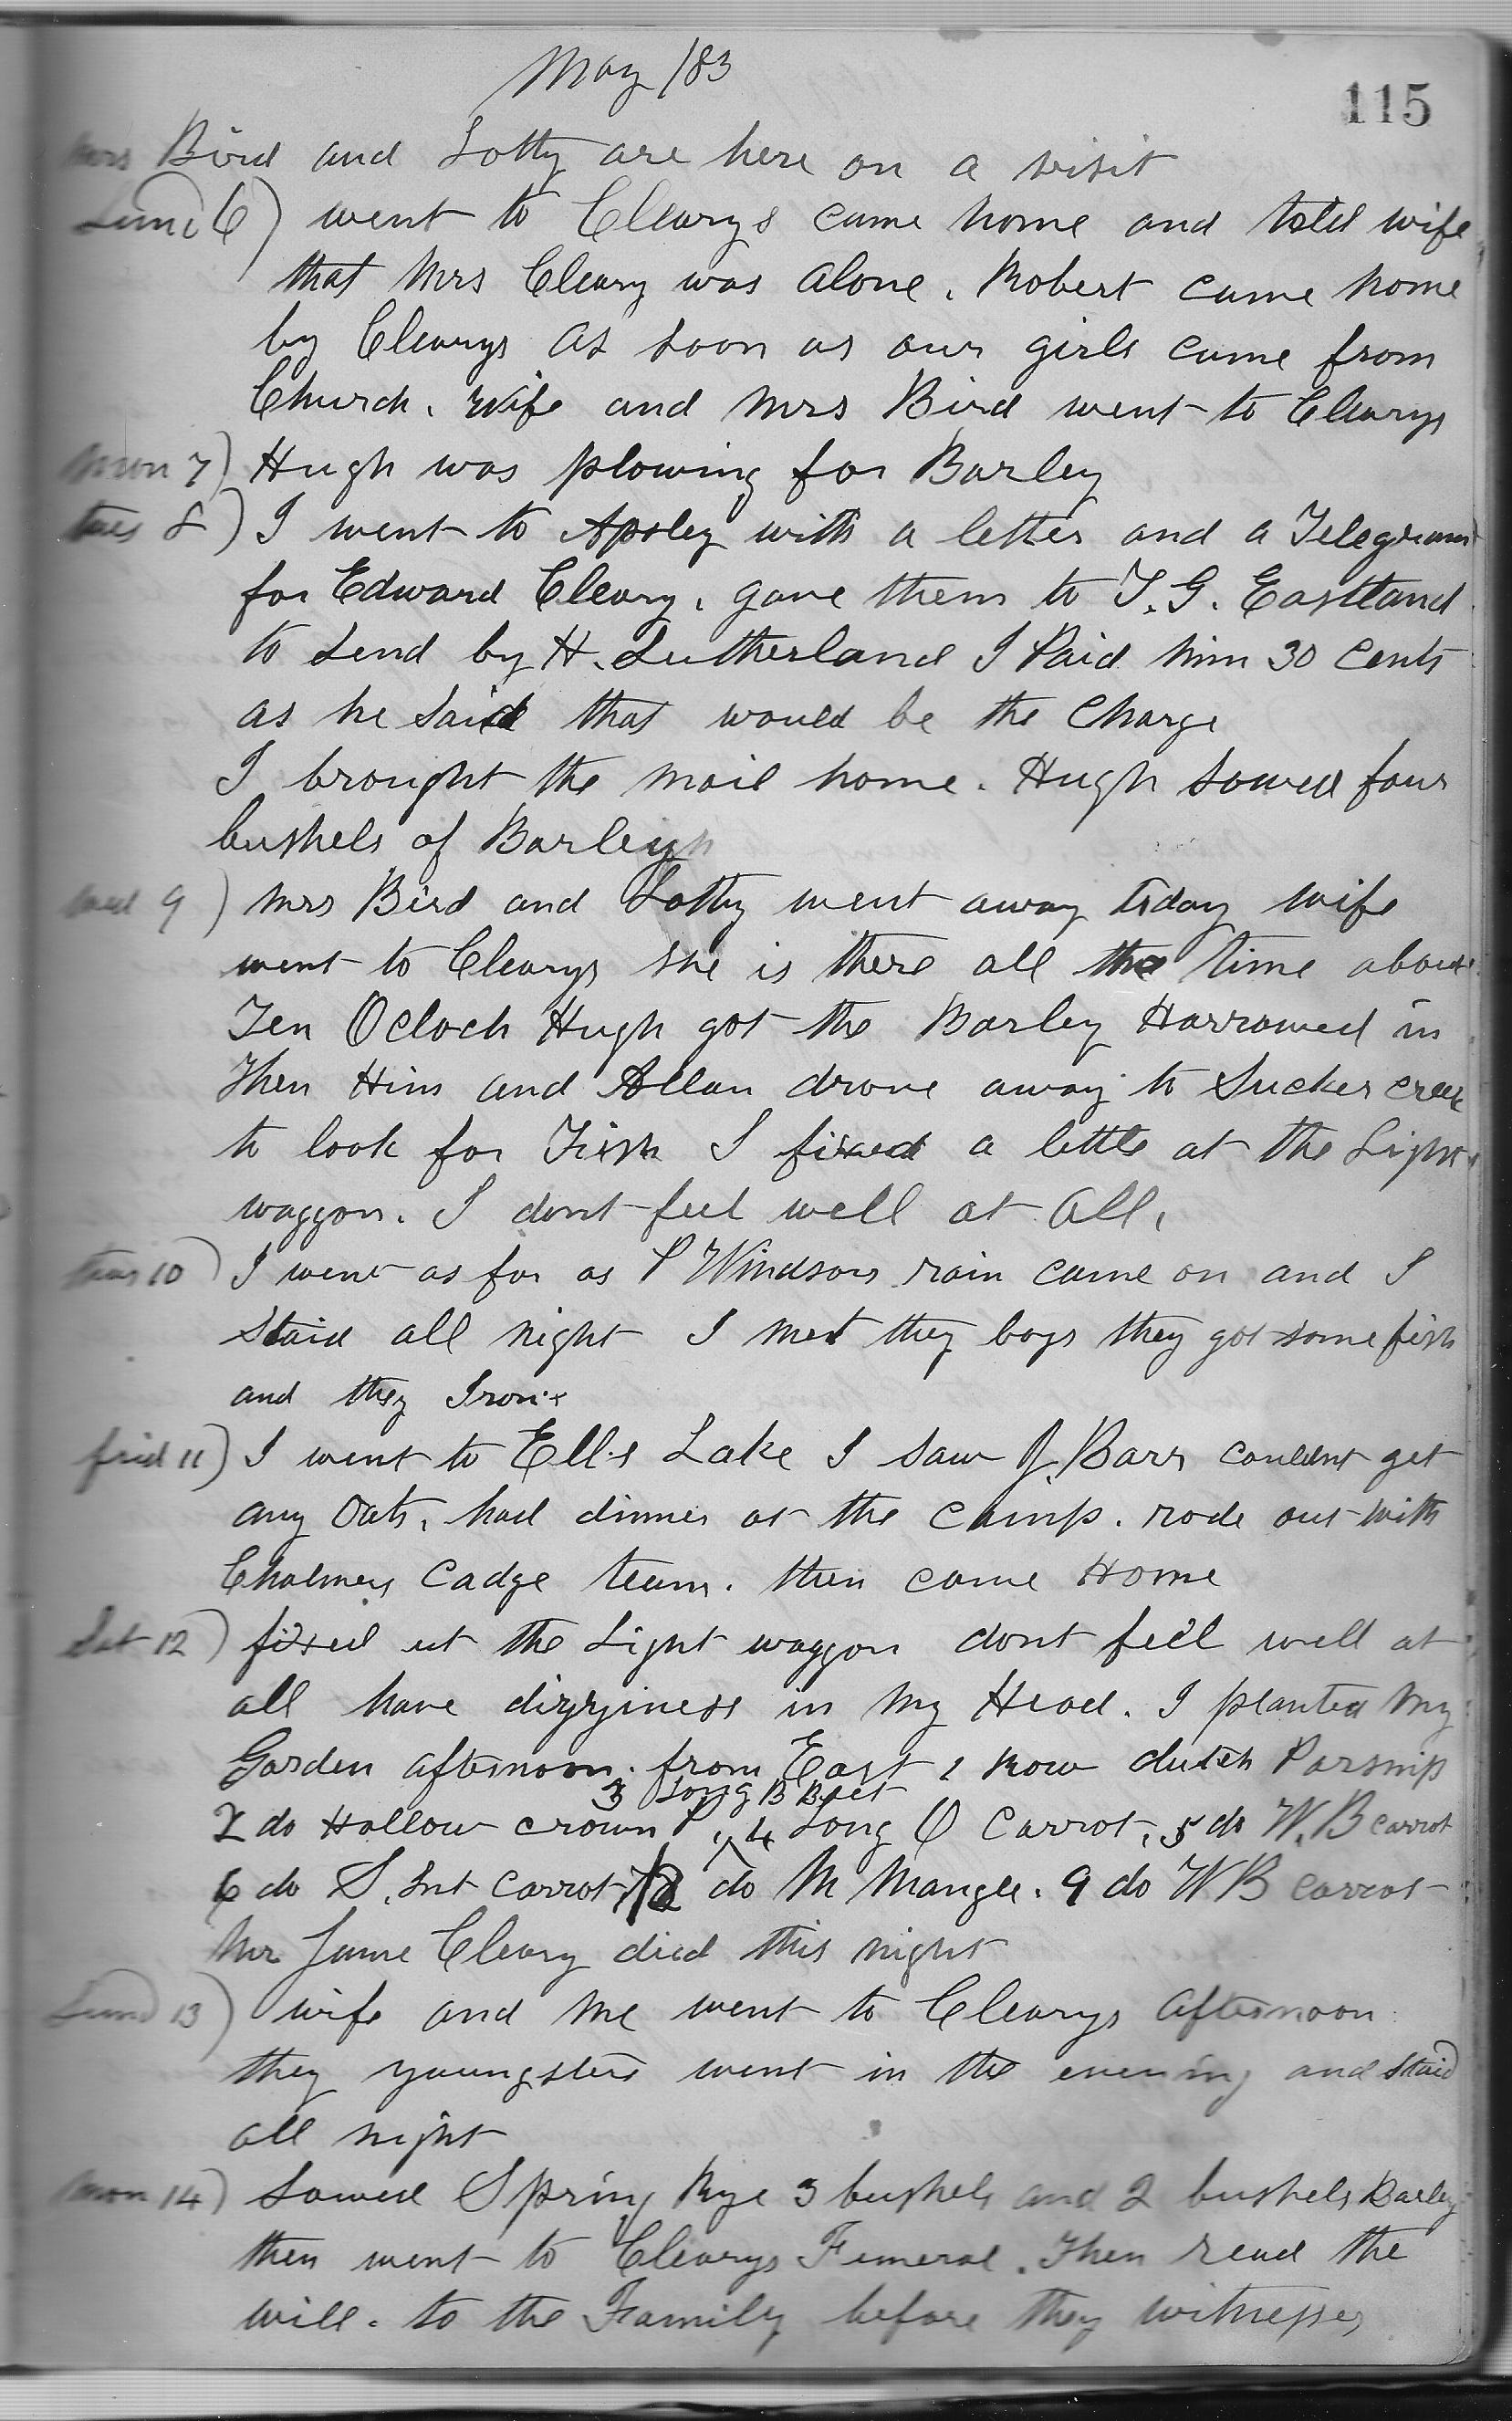 May /83
115
Mrs Bird and Lotty are here on a visit
Sund 6) went to Clearys came home and told wife
that Mrs Cleary was alone. Robert came home
by Clearys as soon as our girls came from
Church. wife and Mrs Bird went to Clearys
Mon 7) Hugh was plowing for Barley
tues 8) I went to Apsley with a letter and a Telegram
for Edward Cleary. gave them to T. G. Eastland
to send by H. Sutherland I Paid him 30 cents
as he said that would be the charge
I brought the mail home. Hugh sowed four
bushels of Barley
wed 9) Mrs Bird and Lotty went away today wife
went to Clearys she is there all the time about
Ten Oclock Hugh got the Barley Harrowed in
Then Him and Allan drove away to Sucker creek
to look for Fish I fixed a little at the Light
waggon. I dont feel well at all.
thur 10) I went as far as P Windsors rain came on and I
staid all night I met they boys they got some fish
and they Irons
frid 11) I went to Ells Lake I saw J. Barr couldnt get
any Oats. had dinner at the camp. rode out with
Chalmers Cadge team. then came Home
Sat 12) fixed at the Light waggon dont feel well at
all have dizzyiness in my Head. I planted my
Garden afternoon. from East 1 Row dutch Parsnip
3 Long B Beet
2 do Hollow crown P. 4 Long O Carrot. 5 do W. B carrot
6 do S. Int carrot do M Mangle. 9 do W B carrot
Mr Jame Cleary died this night
Sund 13) wife and me went to Clearys afternoon
they youngsters went in the evening and staid
all night
Mon 14) Sowed Spring Rye 3 bushels and 2 bushels Barley
then went to Clearys Funeral. Then read the
will. to the Family before they witnesses